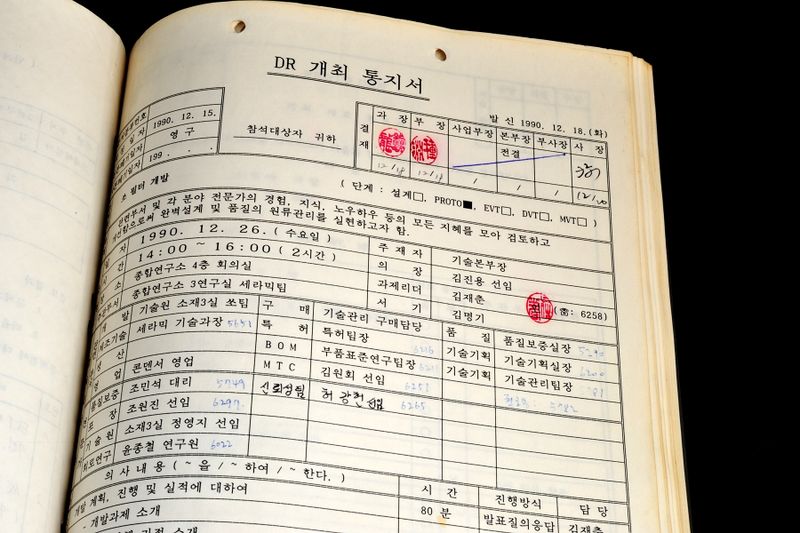 DR 개최 통지서
발 신 1990. 12. 18.(화)
1990. 12. 15.
영 구
199 .
참석대상자 귀하
결 재
과 장 부 장 사업부장 본부장 부사장 사 장
전결
12/18 12/18 / / / 12/20
소 필터 개발
( 단계 : 설계□, PROTO■, EVT□, DVT□, MVT□ )
및 각 분야 전문가의 경험, 지식, 노우하우 등의 모든 지혜를 모아 검토하고
완벽설계 및 품질의 원류관리를 실현하고자 함.
1990. 12. 26. ( 수요일 ) 주 재 자 기술본부장
14:00 ~ 16:00 ( 2시간 ) 의 장 김진용 선임
종합연구소 4층 회의실 과제리더 김재춘
종합연구소 3연구실 세라믹팀 서 기 김명기 (☎: 6258)
개 발 기술원 소재3실 쏘팀 구 매 기술관리 구매담당 품 질 품질보증실장
제조기술 세라믹 기술과장 5651 특 허 특허팀장 기술기획 기술기획실장
산 BOM 부품표준연구팀장 기술기획 기술관리팀장
영 업 콘덴서 영업 MTC 김원회 선임 6251
품질보증 조민석 대리 5749 신뢰성팀 허광현 선임 6265
장 조원진 선임 6297
기 술 원 소재3실 정영지 선임
회로연구 윤중철 연구원 6022
의 사 내 용 ( ~ 을 / ~ 하여 / ~ 한다. ) 시 간 진행방식 담 당
개발 계획, 진행 및 실적에 대하여
개발과제 소개 80 분 발표질의응답 김재춘
소개